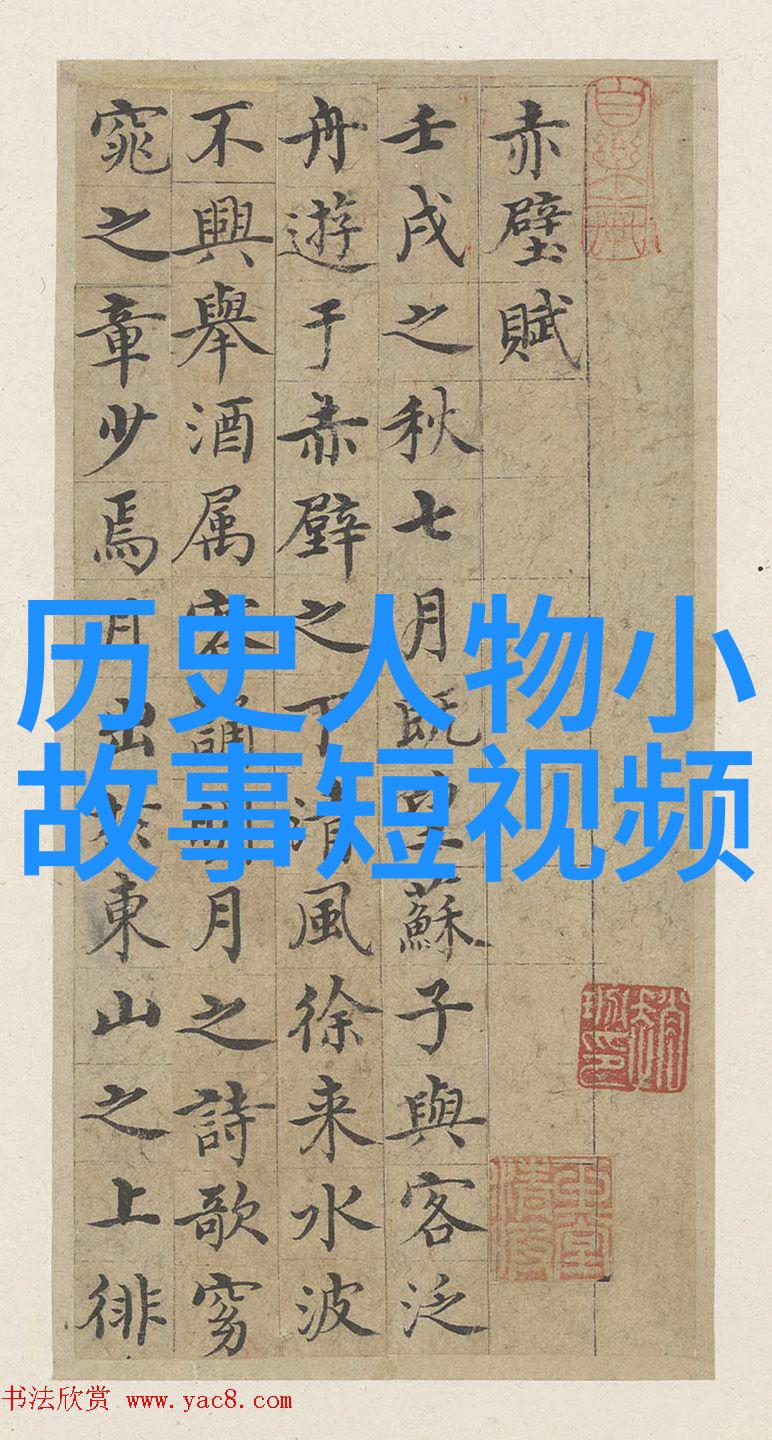 赤壁賦
壬戌之秋七月既望蘇子與客泛
舟遊于赤壁之下清風徐来水波
不興舉酒属客誦明月之詩歌窈
窕之章少焉月出於東山之上徘
历史人物小
故事短视频
书法欣赏 www.yac8.com